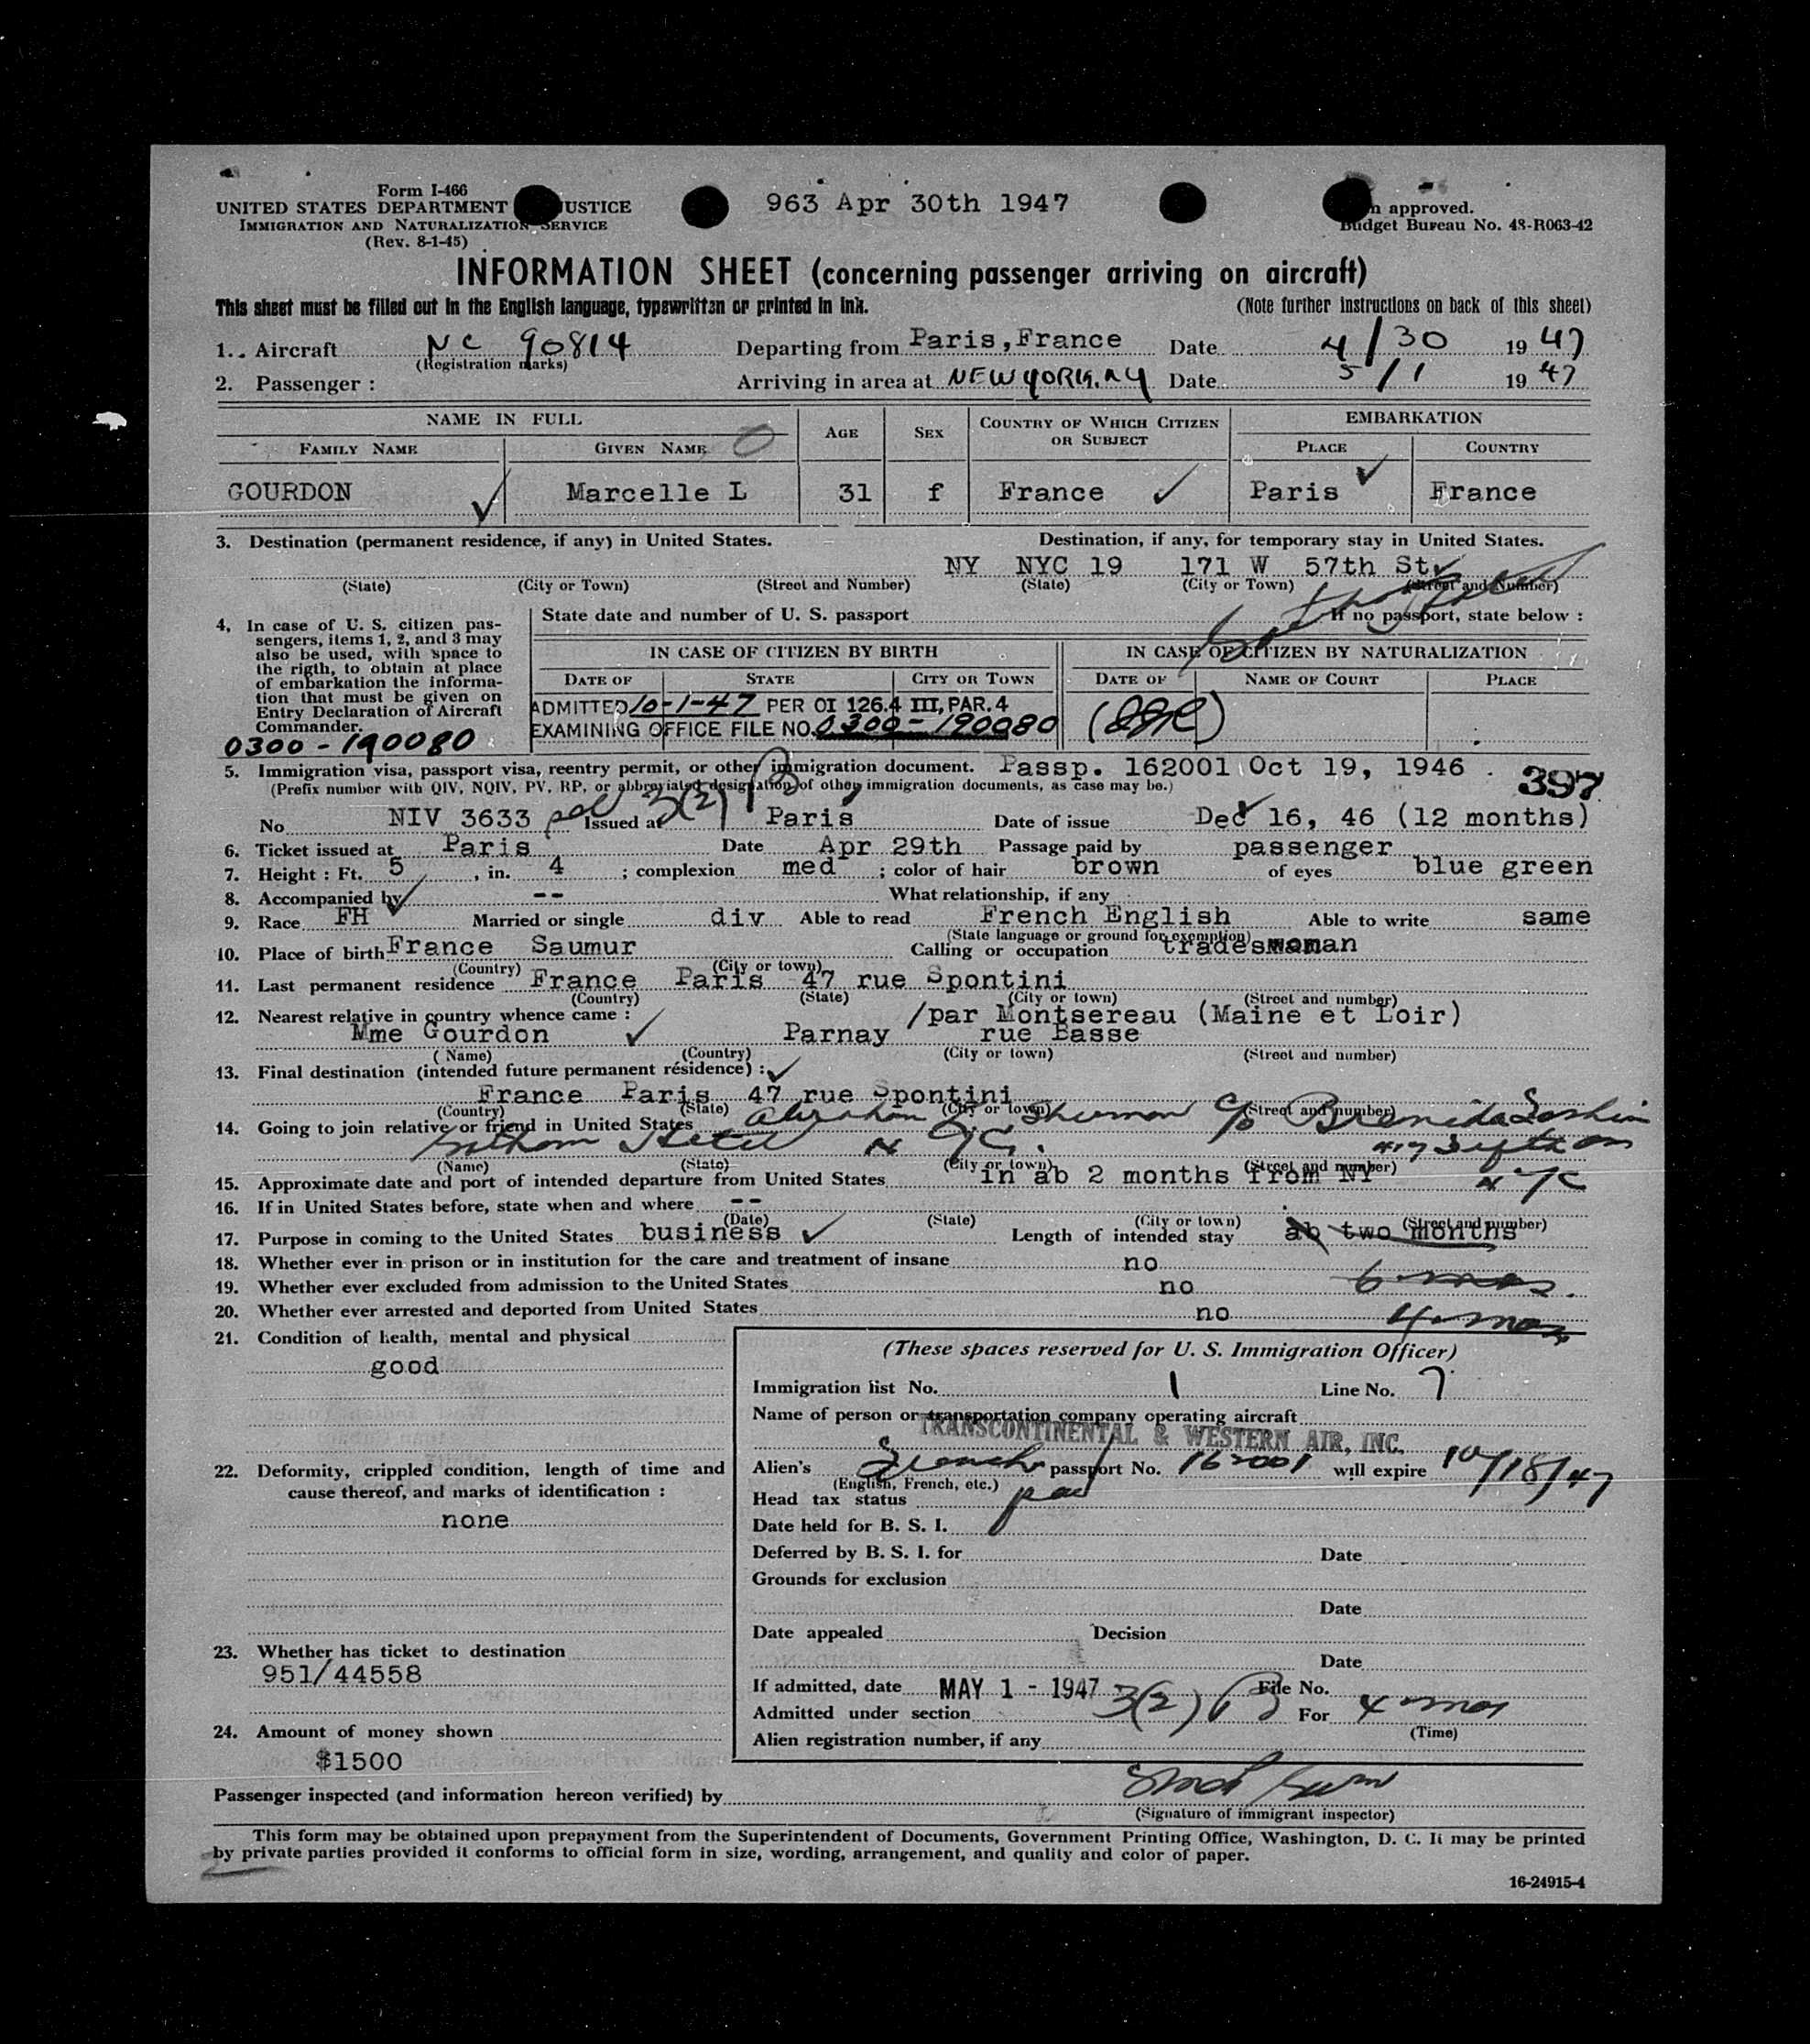 Form I-466
UNITED STATES DEPARTMENT USTICE
IMMIGRATION AND NATURALIZATION SERVICE
(Rev. 8-1-45)
963 Apr 30th 1947
approved.
Budget Bureau No. 43-R063-42
INFORMATION SHEET (concerning passenger arriving on aircraft)
This sheet must be filled out in the English language, typewritten or printed in ink. (Note further instructions on back of this sheet)
1. Aircraft NC 90814 Departing from Paris, France Date 4/30 1947
(Registration marks)
2. Passenger : Arriving in area at NEW YORK, NY Date 5/1 1947
NAME IN FULL AGE SEX COUNTRY OF WHICH CITIZEN OR SUBJECT EMBARKATION
FAMILY NAME GIVEN NAME PLACE COUNTRY
GOURDON Marcelle L 31 f France Paris France
3. Destination (permanent residence, if any) in United States. Destination, if any, for temporary stay in United States.
NY NYC 19 171 W 57th St
(State) (City or Town) (Street and Number) (State) (City or Town) (Street and Number)
4. In case of U. S. citizen pas-
sengers, items 1, 2, and 3 may
also be used, with space to
the rigth, to obtain at place
of embarkation the informa-
tion that must be given on
Entry Declaration of Aircraft
Commander.
0300-190080
State date and number of U. S. passport If no passport, state below :
IN CASE OF CITIZEN BY BIRTH IN CASE OF CITIZEN BY NATURALIZATION
DATE OF STATE CITY OR TOWN DATE OF NAME OF COURT PLACE
ADMITTED 10-1-47 PER OI 126.4 III, PAR. 4
EXAMINING OFFICE FILE NO. 0300-190080
5. Immigration visa, passport visa, reentry permit, or other immigration document. Passp. 162001 Oct 19, 1946
(Prefix number with QIV, NQIV, PV, RP, or abbreviated designation of other immigration documents, as case may be.) 397
3(2)
No NIV 3633 Issued at Paris Date of issue Dec 16, 46 (12 months)
6. Ticket issued at Paris Date Apr 29th Passage paid by passenger
7. Height : Ft. 5 , in. 4 ; complexion med ; color of hair brown of eyes blue green
8. Accompanied by -- What relationship, if any
9. Race FH Married or single div Able to read French English Able to write same
(State language or ground for exemption)
10. Place of birth France Saumur Calling or occupation tradeswoman
(Country) (City or town)
11. Last permanent residence France Paris 47 rue Spontini
(Country) (State) (City or town) (Street and number)
12. Nearest relative in country whence came : /par Montsereau (Maine et Loir)
Mme Gourdon Parnay rue Basse
(Name) (Country) (City or town) (Street and number)
13. Final destination (intended future permanent résidence) :
France Paris 47 rue Spontini
(Country) (State) (City or town) (Street and number)
14. Going to join relative or friend in United States Abraham Sherman c/o
Gotham Hotel NYC.
(Name) (State) (City or town) (Street and number)
15. Approximate date and port of intended departure from United States in ab 2 months from NY NYC
16. If in United States before, state when and where --
(Date) (State) (City or town) (Street and number)
17. Purpose in coming to the United States business Length of intended stay ab two months
18. Whether ever in prison or in institution for the care and treatment of insane no
19. Whether ever excluded from admission to the United States no 6 mos.
20. Whether ever arrested and deported from United States no 4 mos
21. Condition of health, mental and physical
good
22. Deformity, crippled condition, length of time and
cause thereof, and marks of identification :
none
23. Whether has ticket to destination
951/44558
24. Amount of money shown
$1500
(These spaces reserved for U. S. Immigration Officer)
Immigration list No. 1 Line No. 7
Name of person or transportation company operating aircraft
TRANSCONTINENTAL & WESTERN AIR, INC.
Alien's French passport No. 162001 will expire 10/18/47
(English, French, etc.)
Head tax status pd
Date held for B. S. I.
Deferred by B. S. I. for Date
Grounds for exclusion
Date
Date appealed Decision
Date
If admitted, date MAY 1 - 1947 File No.
Admitted under section 3(2) For 4 mos
(Time)
Alien registration number, if any
Passenger inspected (and information hereon verified) by
(Signature of immigrant inspector)
This form may be obtained upon prepayment from the Superintendent of Documents, Government Printing Office, Washington, D. C. It may be printed
by private parties provided it conforms to official form in size, wording, arrangement, and quality and color of paper.
16-24915-4